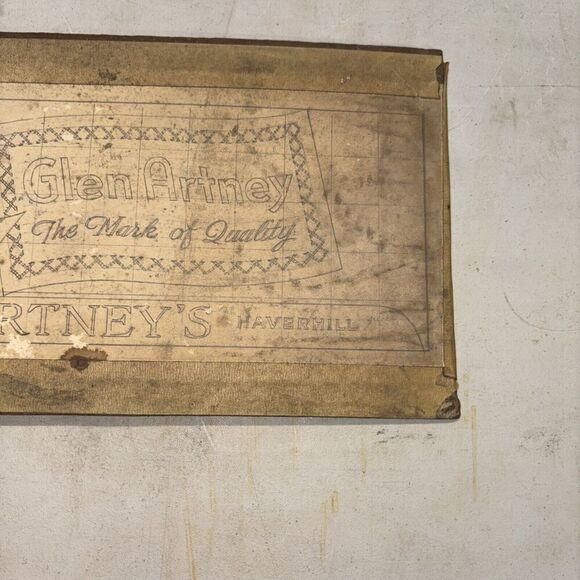 Glen Artney
The Mark of Quality
RTNEY'S HAVERHILL